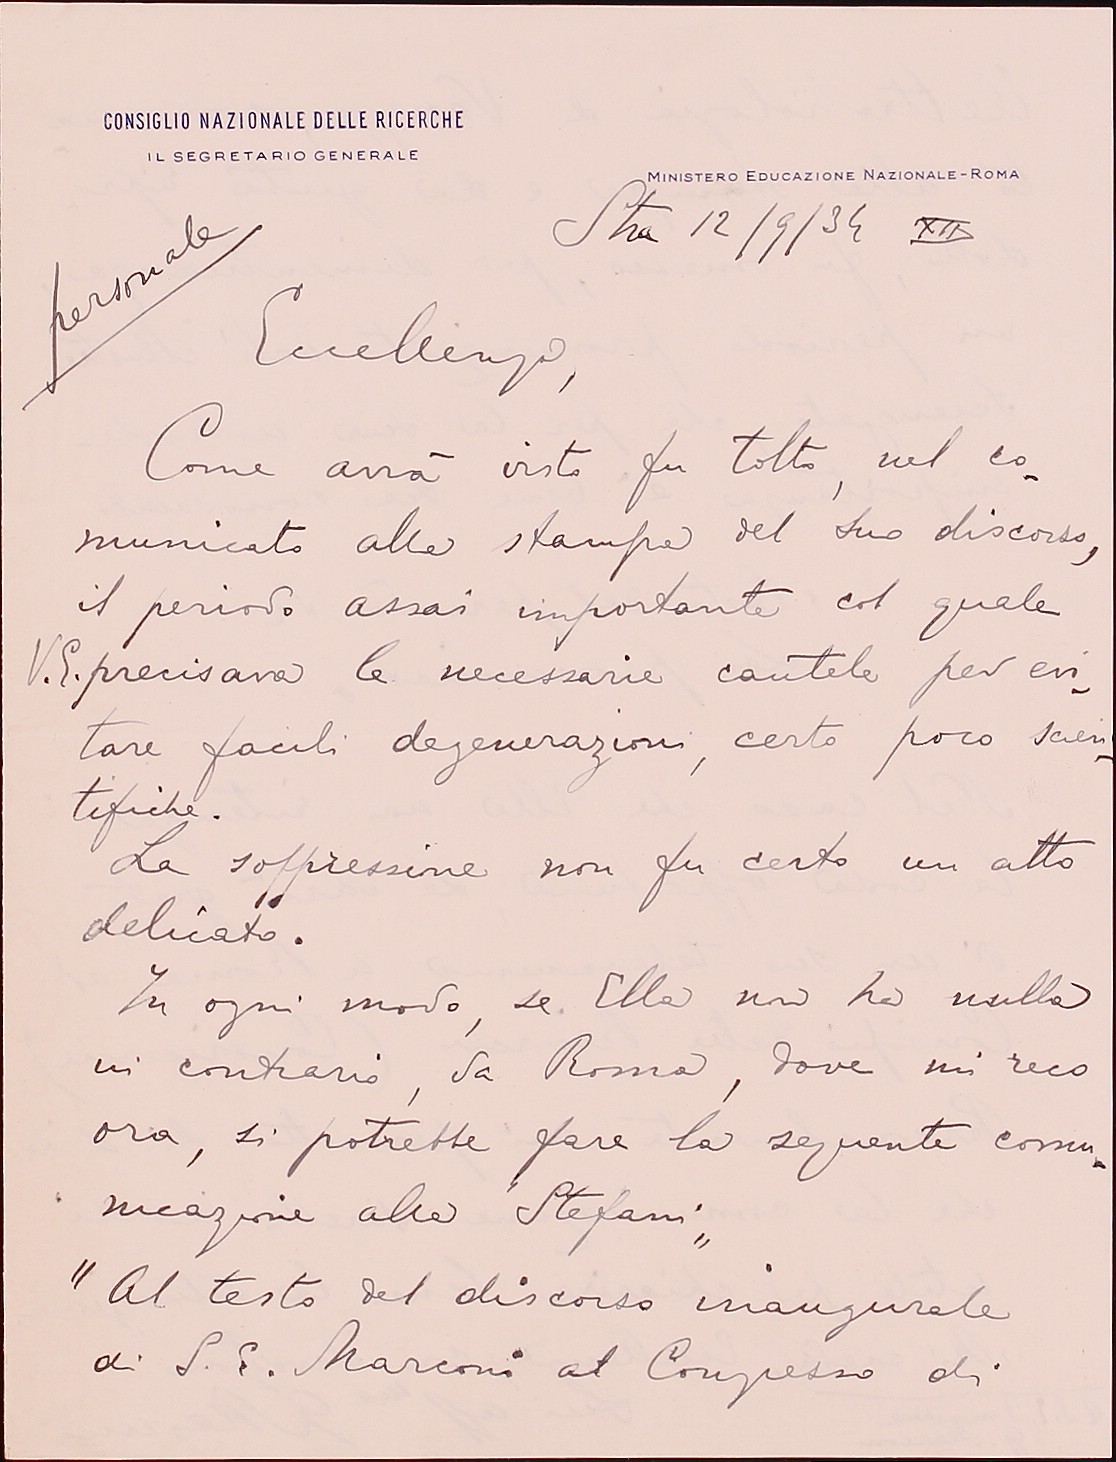 CONSIGLIO NAZIONALE DELLE RICERCHE
IL SEGRETARIO GENERALE
MINISTERO EDUCAZIONE NAZIONALE-ROMA
Stra 12/9/34 XII
personale
Eccellenza,
Come avrà visto fu tolto, nel co-
municato alla stampa del suo discorso,
il periodo assai importante col quale
V.E. precisava le necessarie cautele per evi-
tare facili degenerazioni, certo poco scien-
tifiche.
La soppressione non fu certo un atto
delicato.
In ogni modo, se Ella non ha nulla
in contrario, da Roma, dove mi reco
ora, si potrebbe fare la seguente comu-
nicazione alla "Stefani"
"Al testo del discorso inaugurale
di S.E. Marconi al Congresso di